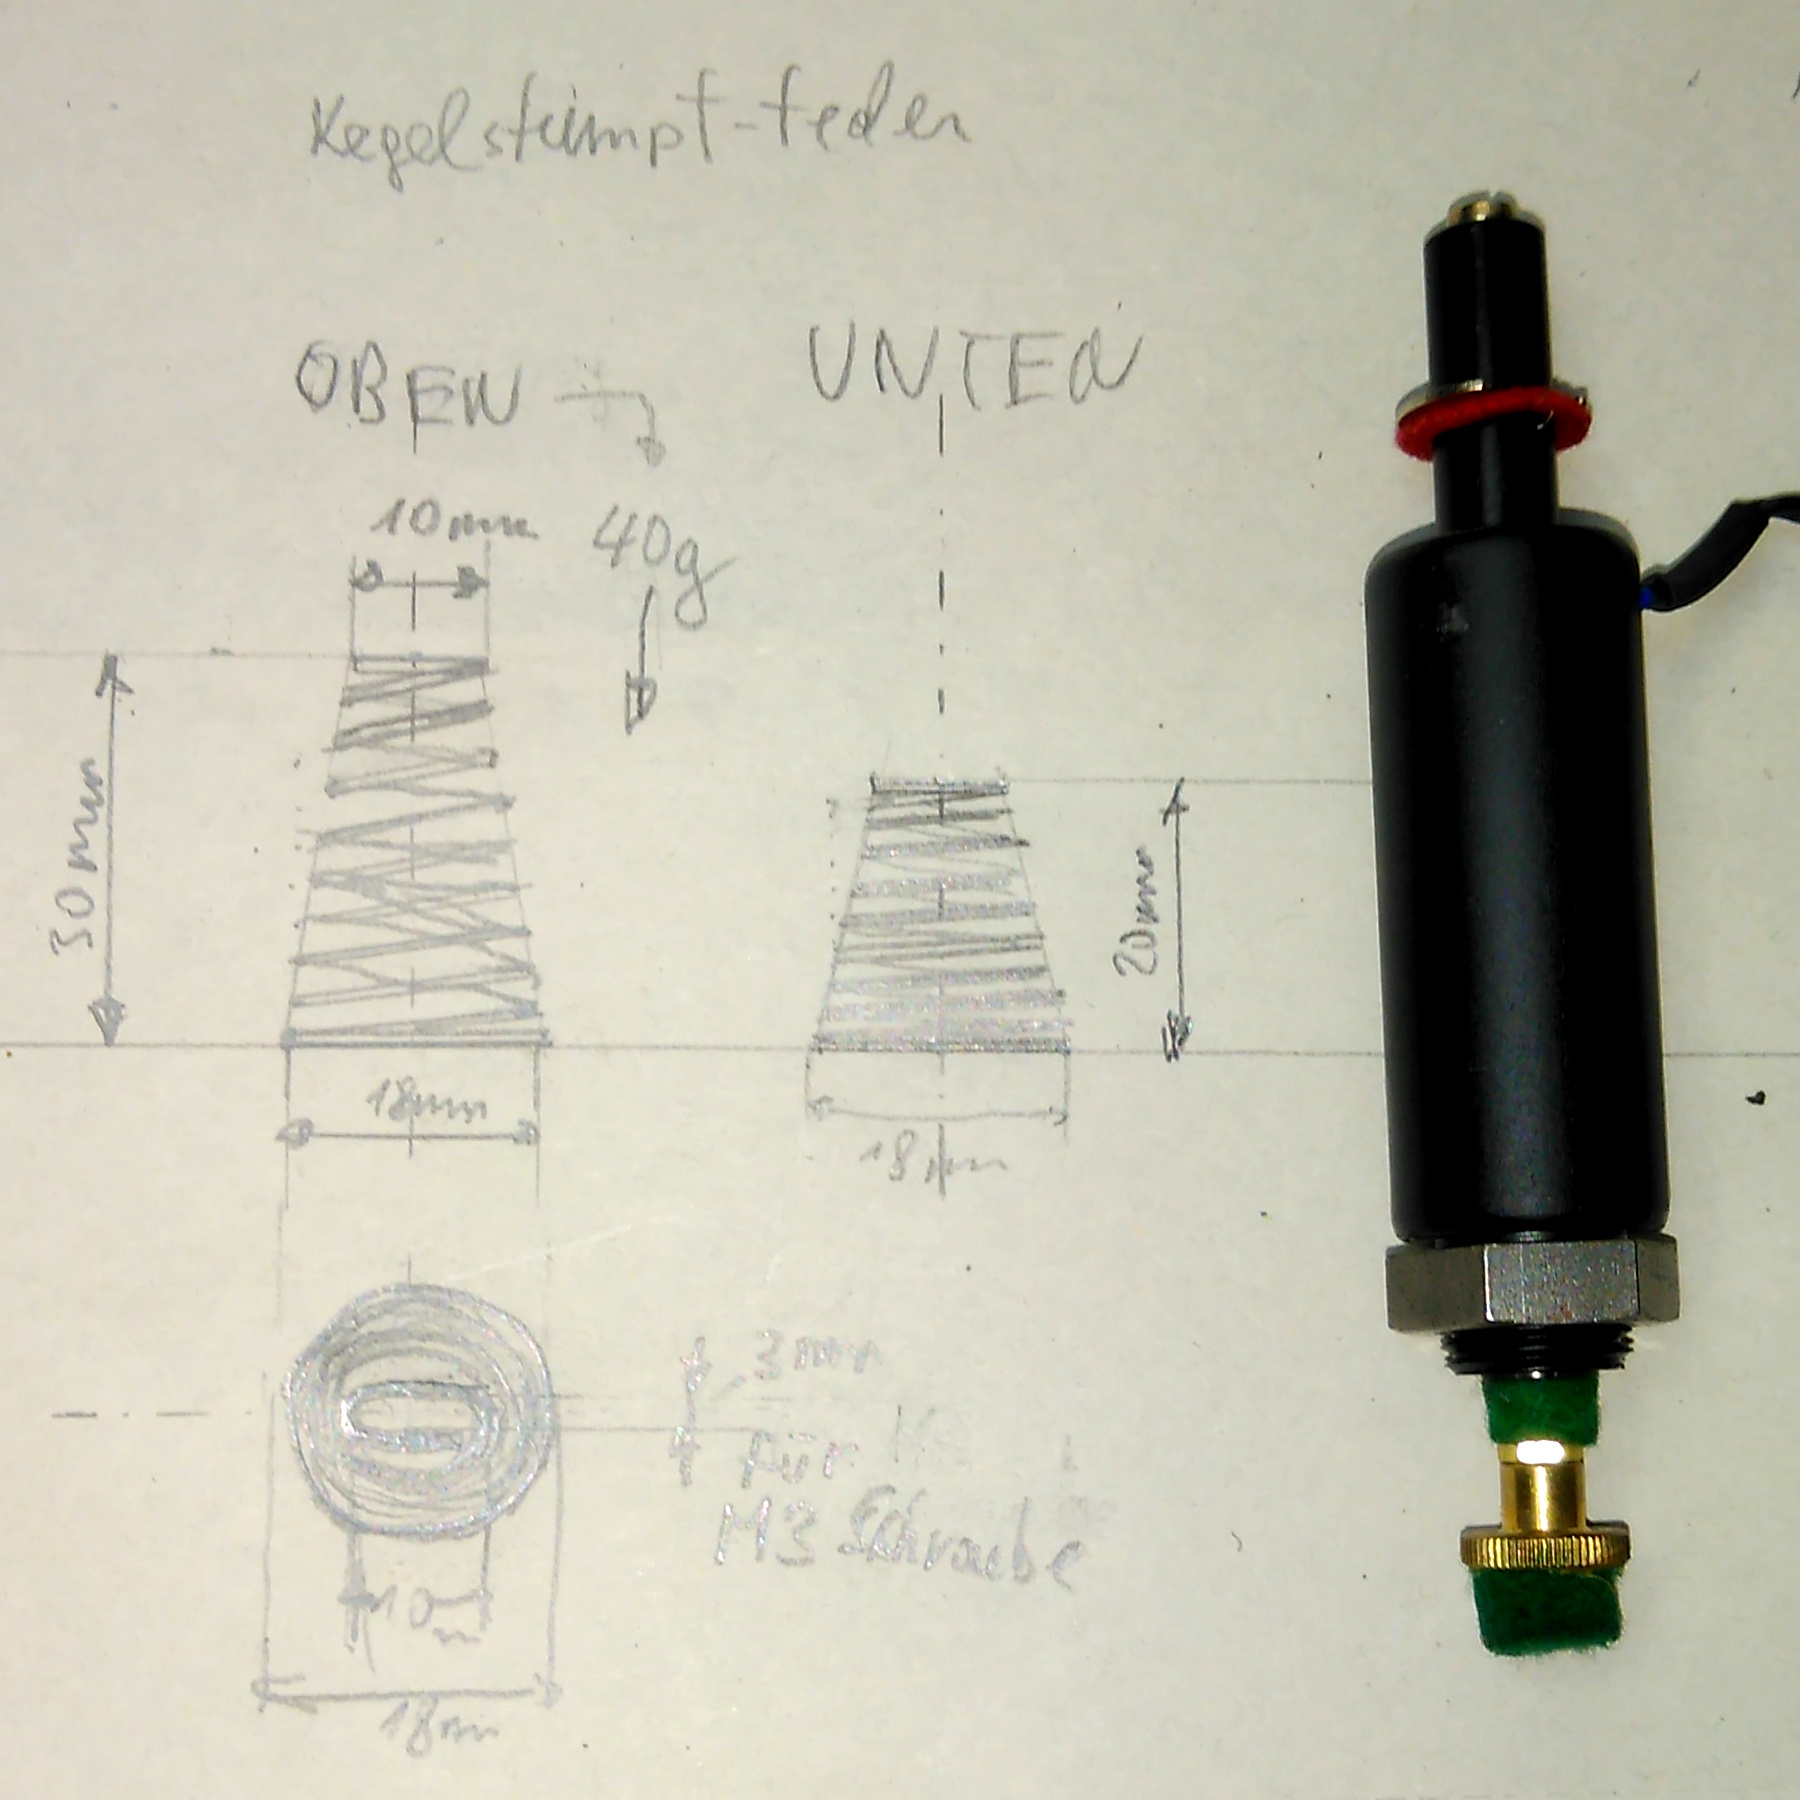 Kegelstumpf-federn
OBEN
UNTEN
10mm
40g
30mm
20mm
18mm
18mm
3mm
für
M3 Schraube
10m
18m